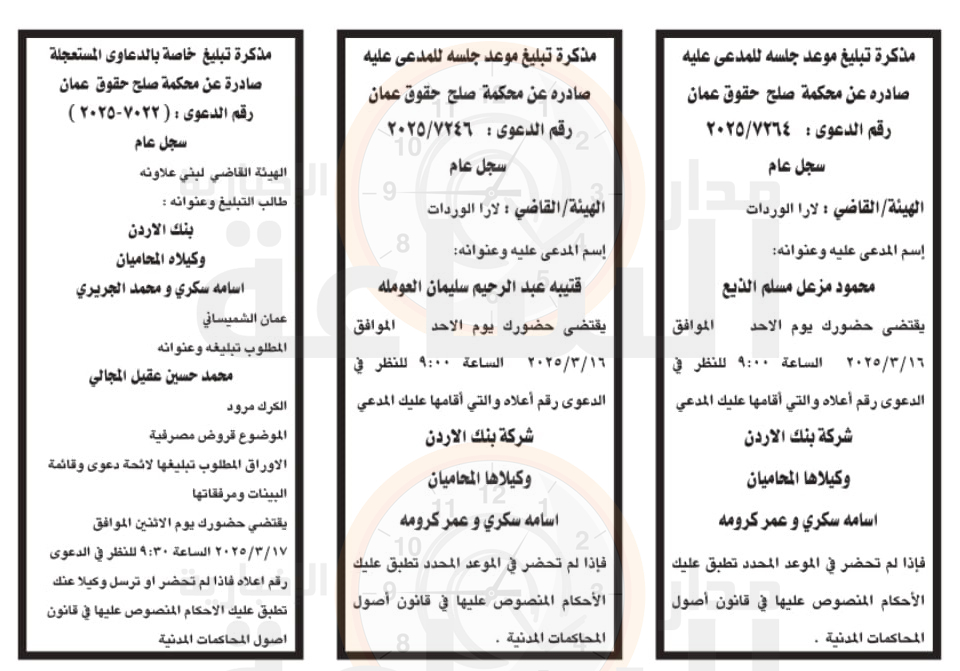 مذكرة تبليغ موعد جلسه للمدعى عليه
صادره عن محكمة صلح حقوق عمان
رقم الدعوى : ٢٠٢٥/٧٢٦٤
سجل عام
الهيئة/القاضي : لارا الوردات
إسم المدعى عليه وعنوانه:
محمود مزعل مسلم الذيع
يقتضى حضورك يوم الاحد الموافق
٢٠٢٥/٣/١٦ الساعة ٩:٠٠ للنظر في
الدعوى رقم أعلاه والتي أقامها عليك المدعي
شركة بنك الاردن
وكيلاها المحاميان
اسامه سكري و عمر كرومه
فإذا لم تحضر في الموعد المحدد تطبق عليك
الأحكام المنصوص عليها في قانون أصول
المحاكمات المدنية .
مذكرة تبليغ موعد جلسه للمدعى عليه
صادره عن محكمة صلح حقوق عمان
رقم الدعوى : ٢٠٢٥/٧٢٤٦
سجل عام
الهيئة/القاضي : لارا الوردات
إسم المدعى عليه وعنوانه:
قتيبه عبد الرحيم سليمان العومله
يقتضى حضورك يوم الاحد الموافق
٢٠٢٥/٣/١٦ الساعة ٩:٠٠ للنظر في
الدعوى رقم أعلاه والتي أقامها عليك المدعي
شركة بنك الاردن
وكيلاها المحاميان
اسامه سكري و عمر كرومه
فإذا لم تحضر في الموعد المحدد تطبق عليك
الأحكام المنصوص عليها في قانون أصول
المحاكمات المدنية .
مذكرة تبليغ خاصة بالدعاوى المستعجلة
صادرة عن محكمة صلح حقوق عمان
رقم الدعوى : ( ٧٠٢٢-٢٠٢٥ )
سجل عام
الهيئة القاضي لبني علاونه
طالب التبليغ وعنوانه :
بنك الاردن
وكيلاه المحاميان
اسامه سكري و محمد الجريري
عمان الشميساني
المطلوب تبليغه وعنوانه
محمد حسين عقيل المجالي
الكرك مرود
الموضوع قروض مصرفية
الاوراق المطلوب تبليغها لائحة دعوى وقائمة
البينات ومرفقاتها
يقتضي حضورك يوم الاثنين الموافق
٢٠٢٥/٣/١٧ الساعة ٩:٣٠ للنظر في الدعوى
رقم اعلاه فاذا لم تحضر او ترسل وكيلا عنك
تطبق عليك الاحكام المنصوص عليها في قانون
اصول المحاكمات المدنية
مدار الساعة
الإخبارية